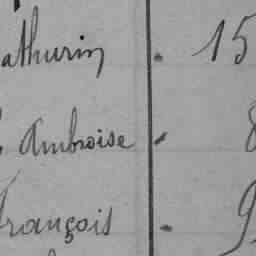 athurin . 15
Ambroise . 8
François . 9